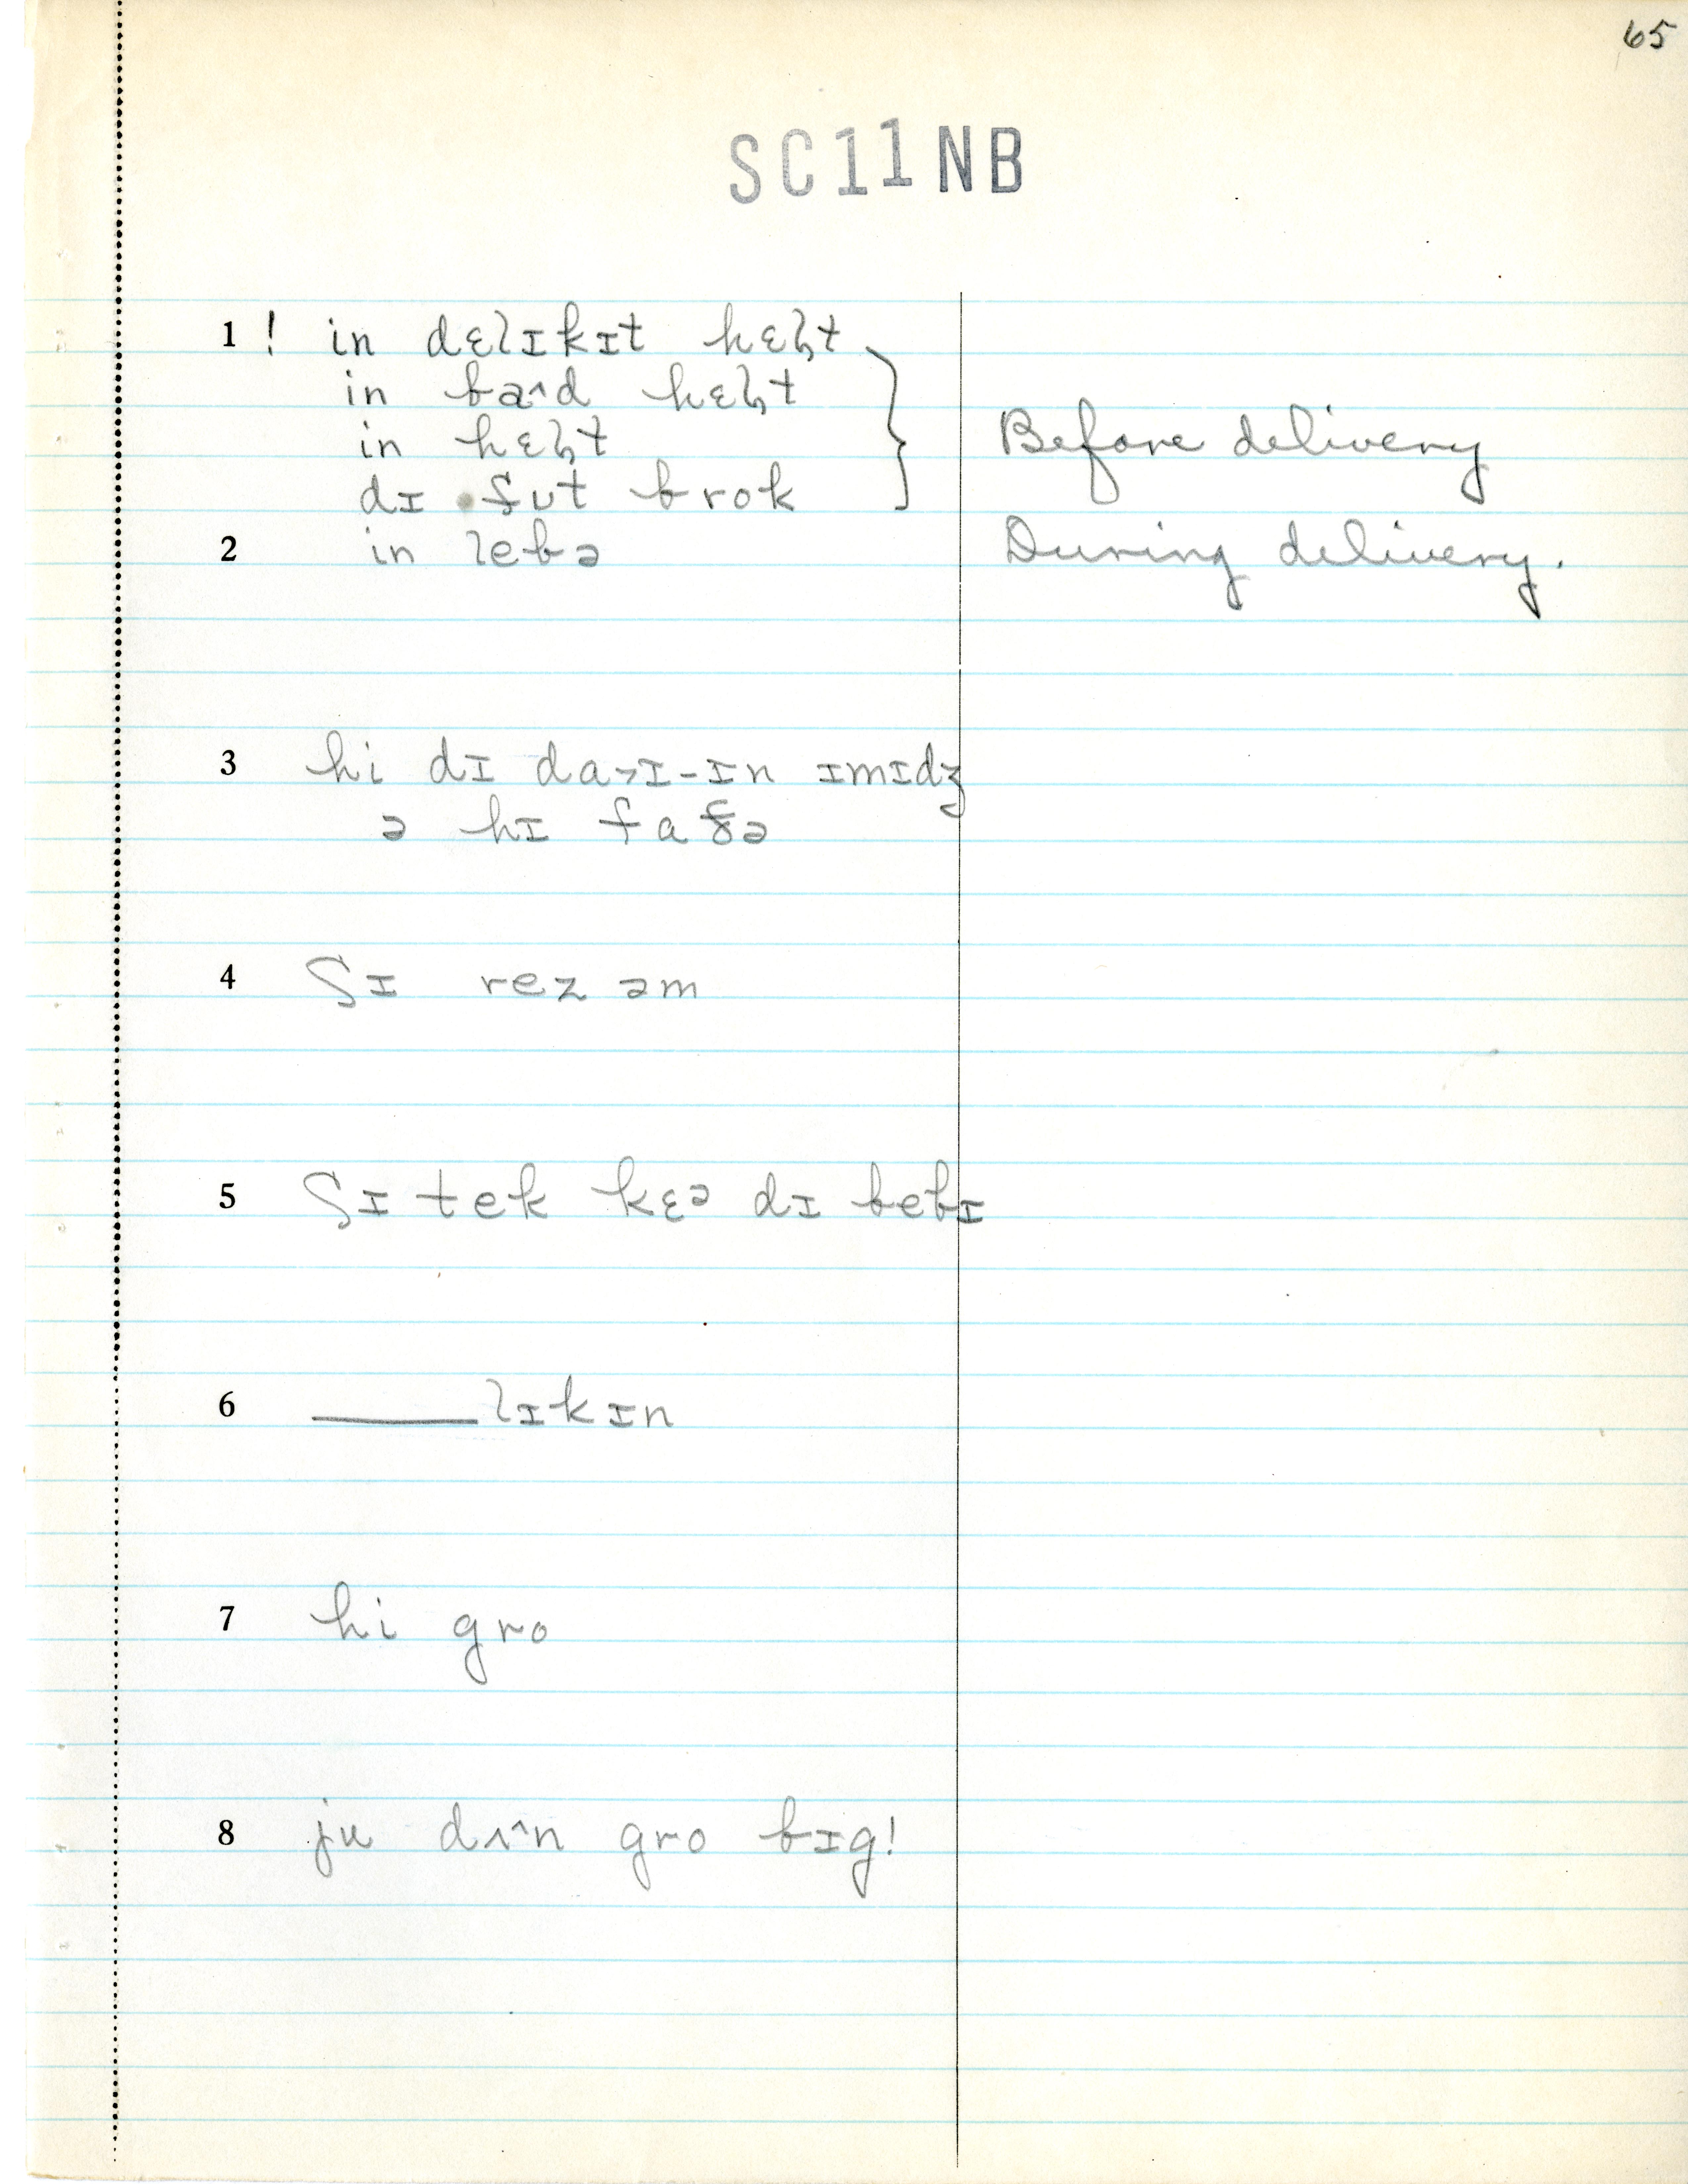 65
SC11NB
1 ! in dɛlɪkɪt hɛlt } 
in ba^d hɛlt
in hɛlt Before delivery
dɪ fut brok
2 in lebə During delivery.
3 hi dɪ da>ɪ-ɪn ɪmɪdʒ
ə hɪ
4 ʃɪ rez əm
5 ʃɪ tek kɛə dɪ bebɪ
6 ______lɪkɪn
7 hi gro
8 ju dʌ^n gro bɪg!